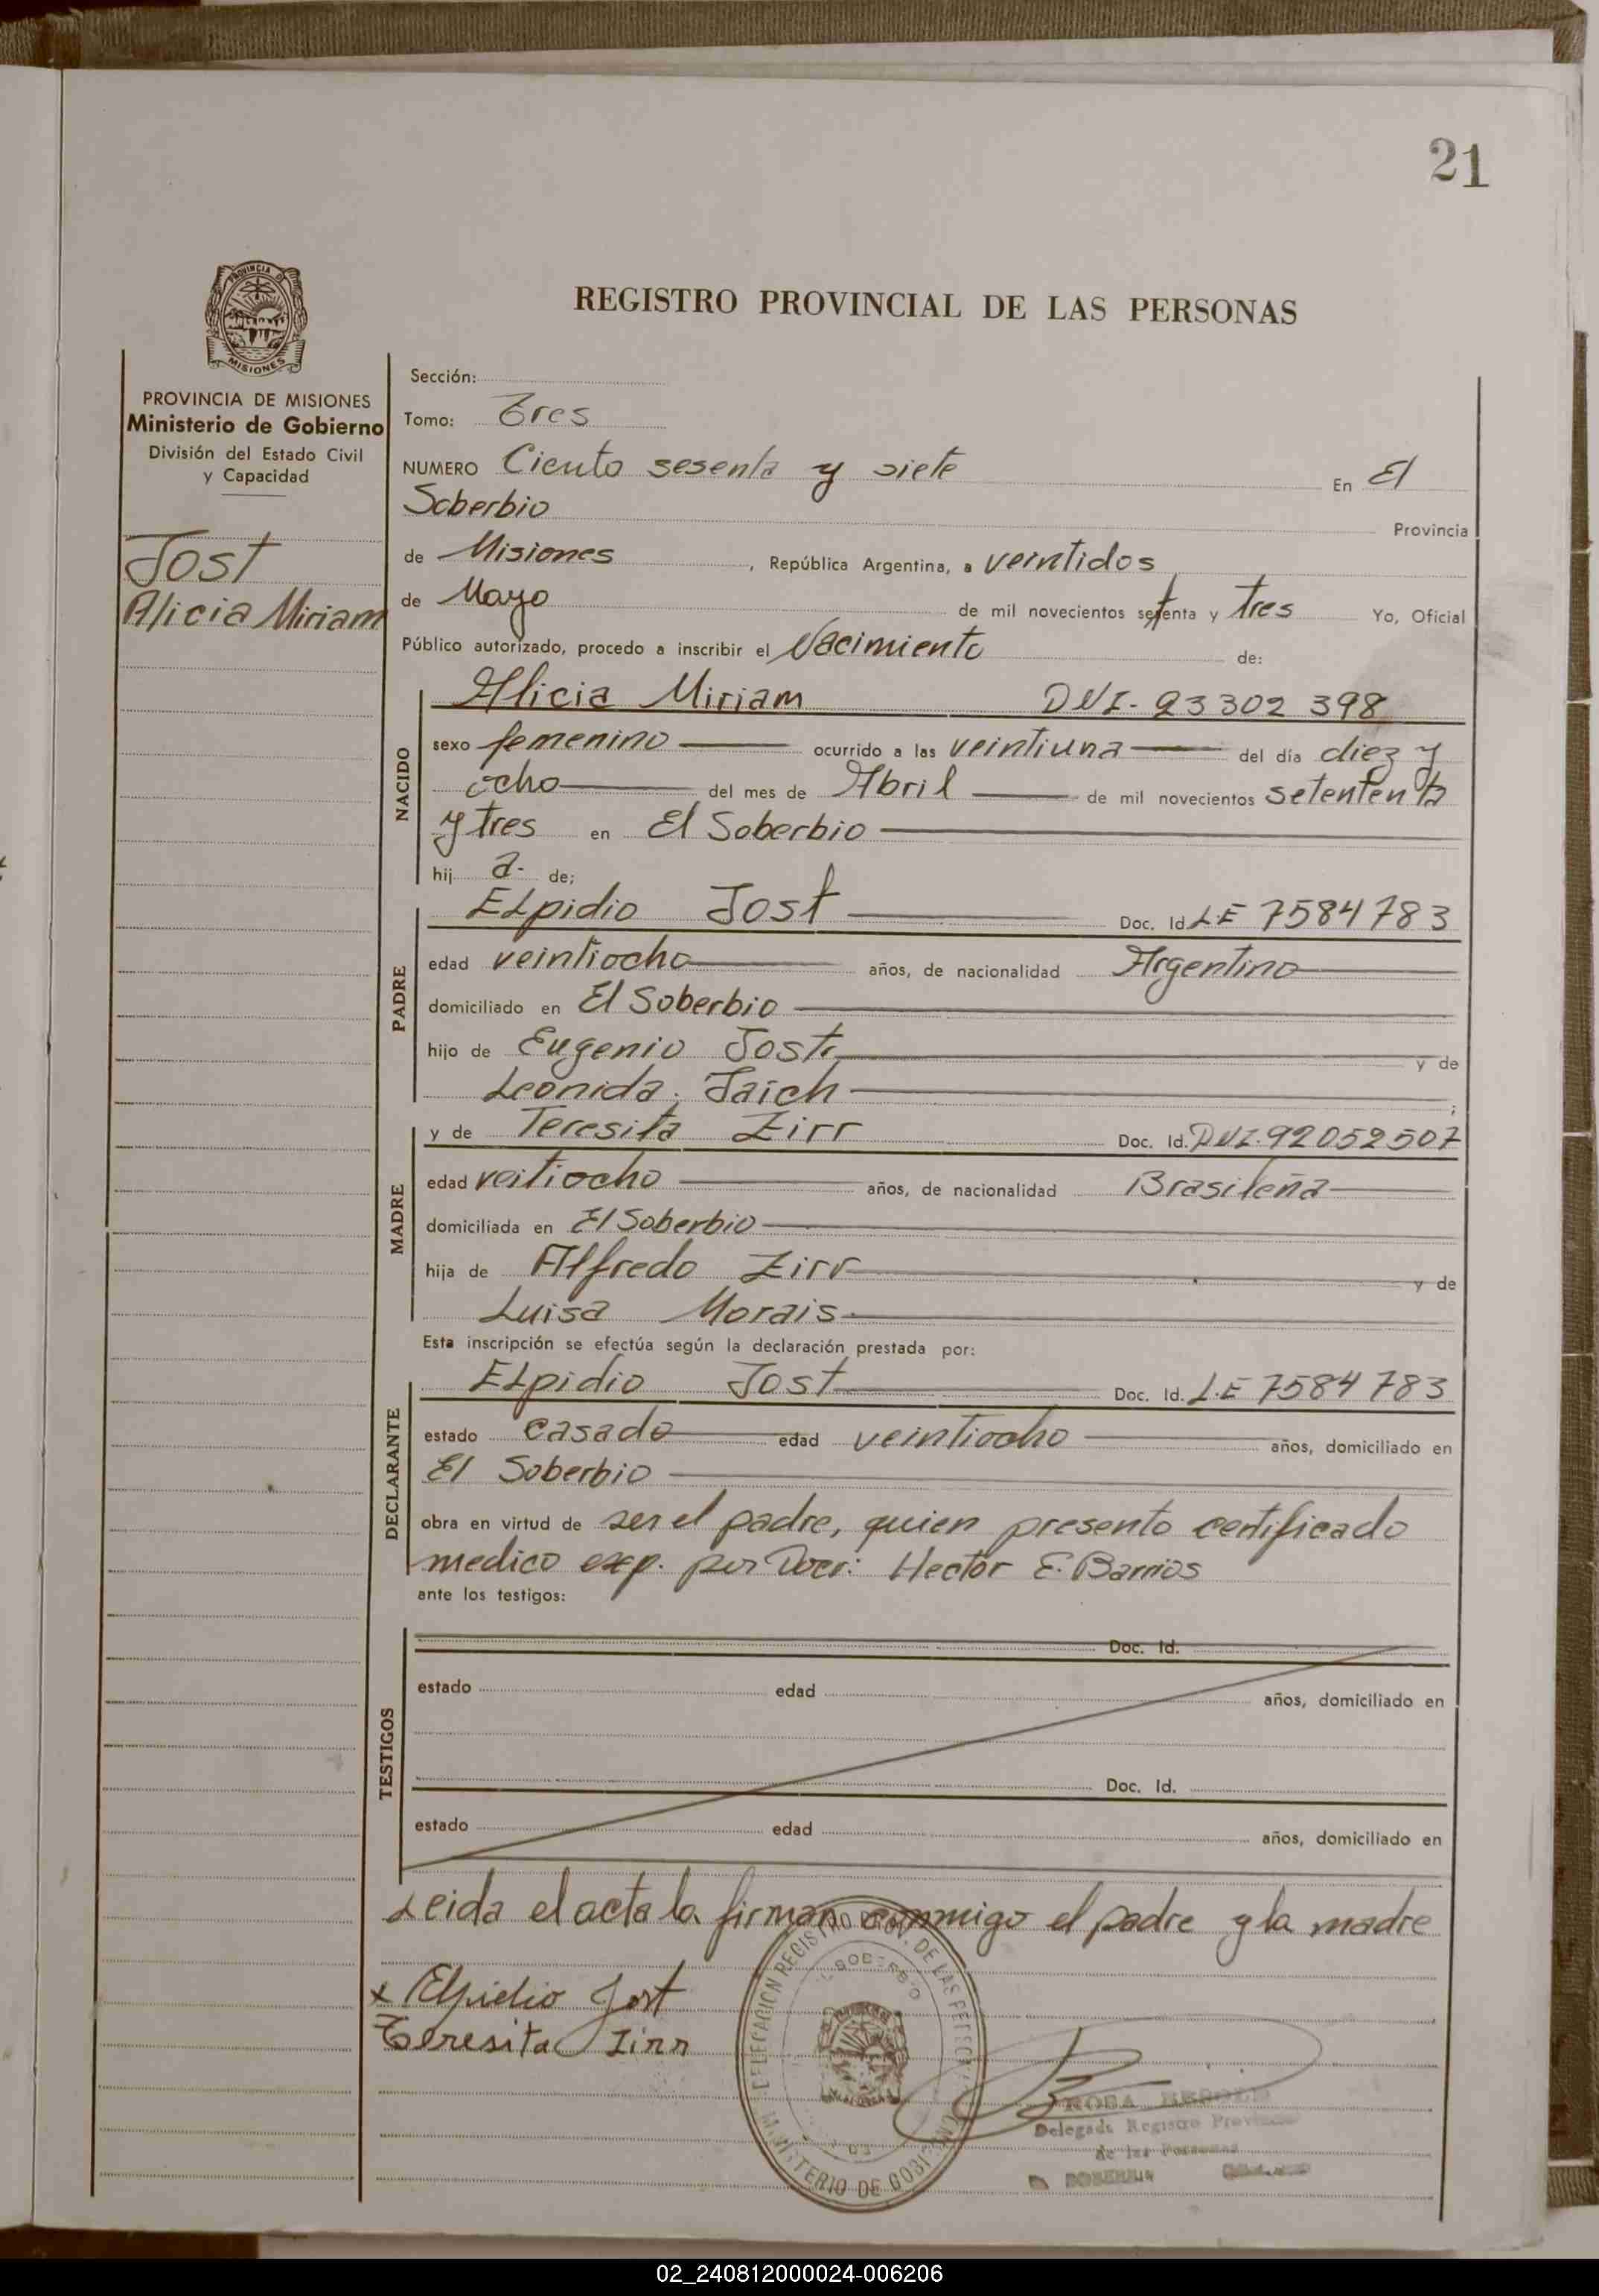 21
PROVINCIA DE
MISIONES
REGISTRO PROVINCIAL DE LAS PERSONAS
PROVINCIA DE MISIONES
Ministerio de Gobierno
División del Estado Civil
y Capacidad
Jost
Alicia Miriam
Sección:
Tomo: Tres
NUMERO Ciento sesenta y siete En El
Soberbio Provincia
de Misiones, República Argentina, a veintidos
de Mayo de mil novecientos setenta y tres Yo, Oficial
Público autorizado, procedo a inscribir el Nacimiento de:
NACIDO
Alicia Miriam DNI- 23302 398
sexo femenino ocurrido a las veintiuna del día diez y
ocho del mes de Abril de mil novecientos setententa
y tres en El Soberbio
hij a. de;
PADRE
ELpidio Jost Doc. Id. LE 7584783
edad veintiocho años, de nacionalidad Argentino
domiciliado en El Soberbio
hijo de Eugenio Jost y de
Leonida Jaich ;
MADRE
y de Teresita Zirr Doc. Id. DNI. 92052507
edad veitiocho años, de nacionalidad Brasileña
domiciliada en El Soberbio
hija de Alfredo Zirr y de
Luisa Morais
Esta inscripción se efectúa según la declaración prestada por:
DECLARANTE
ELpidio Jost Doc. Id. L.E 7584783
estado casado edad veintiocho años, domiciliado en
El Soberbio
obra en virtud de ser el padre, quien presento certificado
medico exp. por Hector E. Barrios
ante los testigos:
TESTIGOS
Doc. Id.
estado edad años, domiciliado en
Doc. Id.
estado edad años, domiciliado en
Leida el acta la firman conmigo el padre y la madre
x Elpidio Jost
Teresita Zirr
DELEGACION REGISTRO PROV. DE LAS PERSONAS
MINISTERIO DE GOBIERNO
ROSA
Delegada Registro Provincial
de las Personas
SOBERBIO
02_240812000024-006206